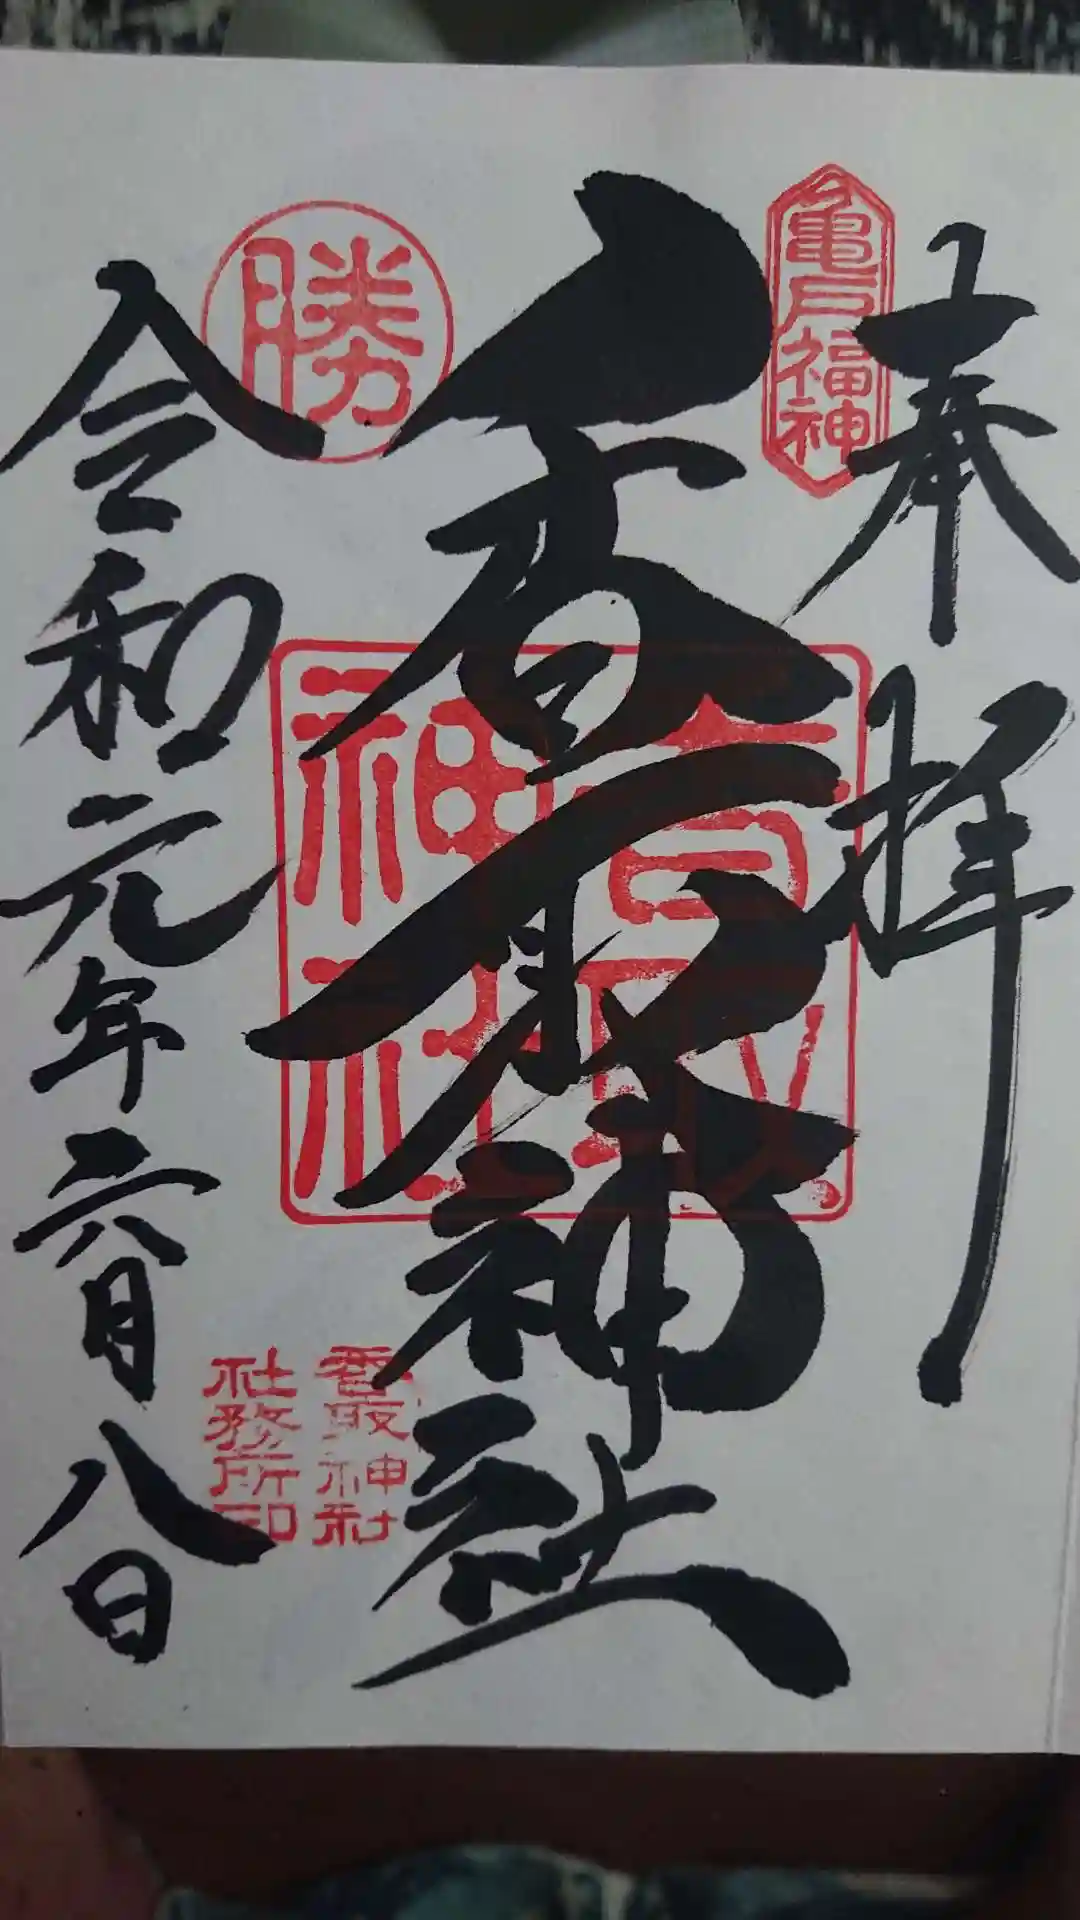 奉拝
亀戸福神
香取神社
香取
神社
勝
香取神社
社務所印
令和元年六月八日